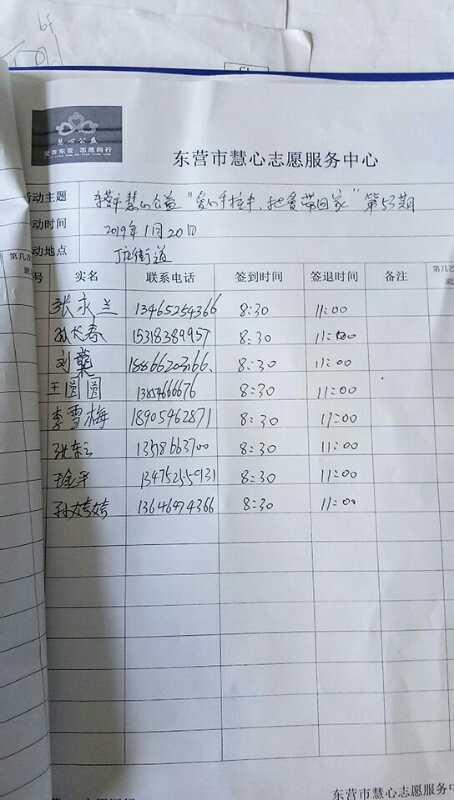 慧心公益
东营市慧心志愿服务中心
动主题 东营市慧心公益“爱心手拉手,把爱带回家”第53期
动时间 2019年1月20日
动地点 街道
号 实名 联系电话 签到时间 签退时间 备注
张永兰 13465254366 8:30 11:00
孙长春 15318389957 8:30 11:00
刘 8:30 11:00
王圆圆 13854666676 8:30 11:00
李雪梅 18905462871 8:30 11:00
13518663700 8:30 11:00
134752559131 8:30 11:00
孙婷婷 13646474366 8:30 11:00
东营市慧心志愿服务中心